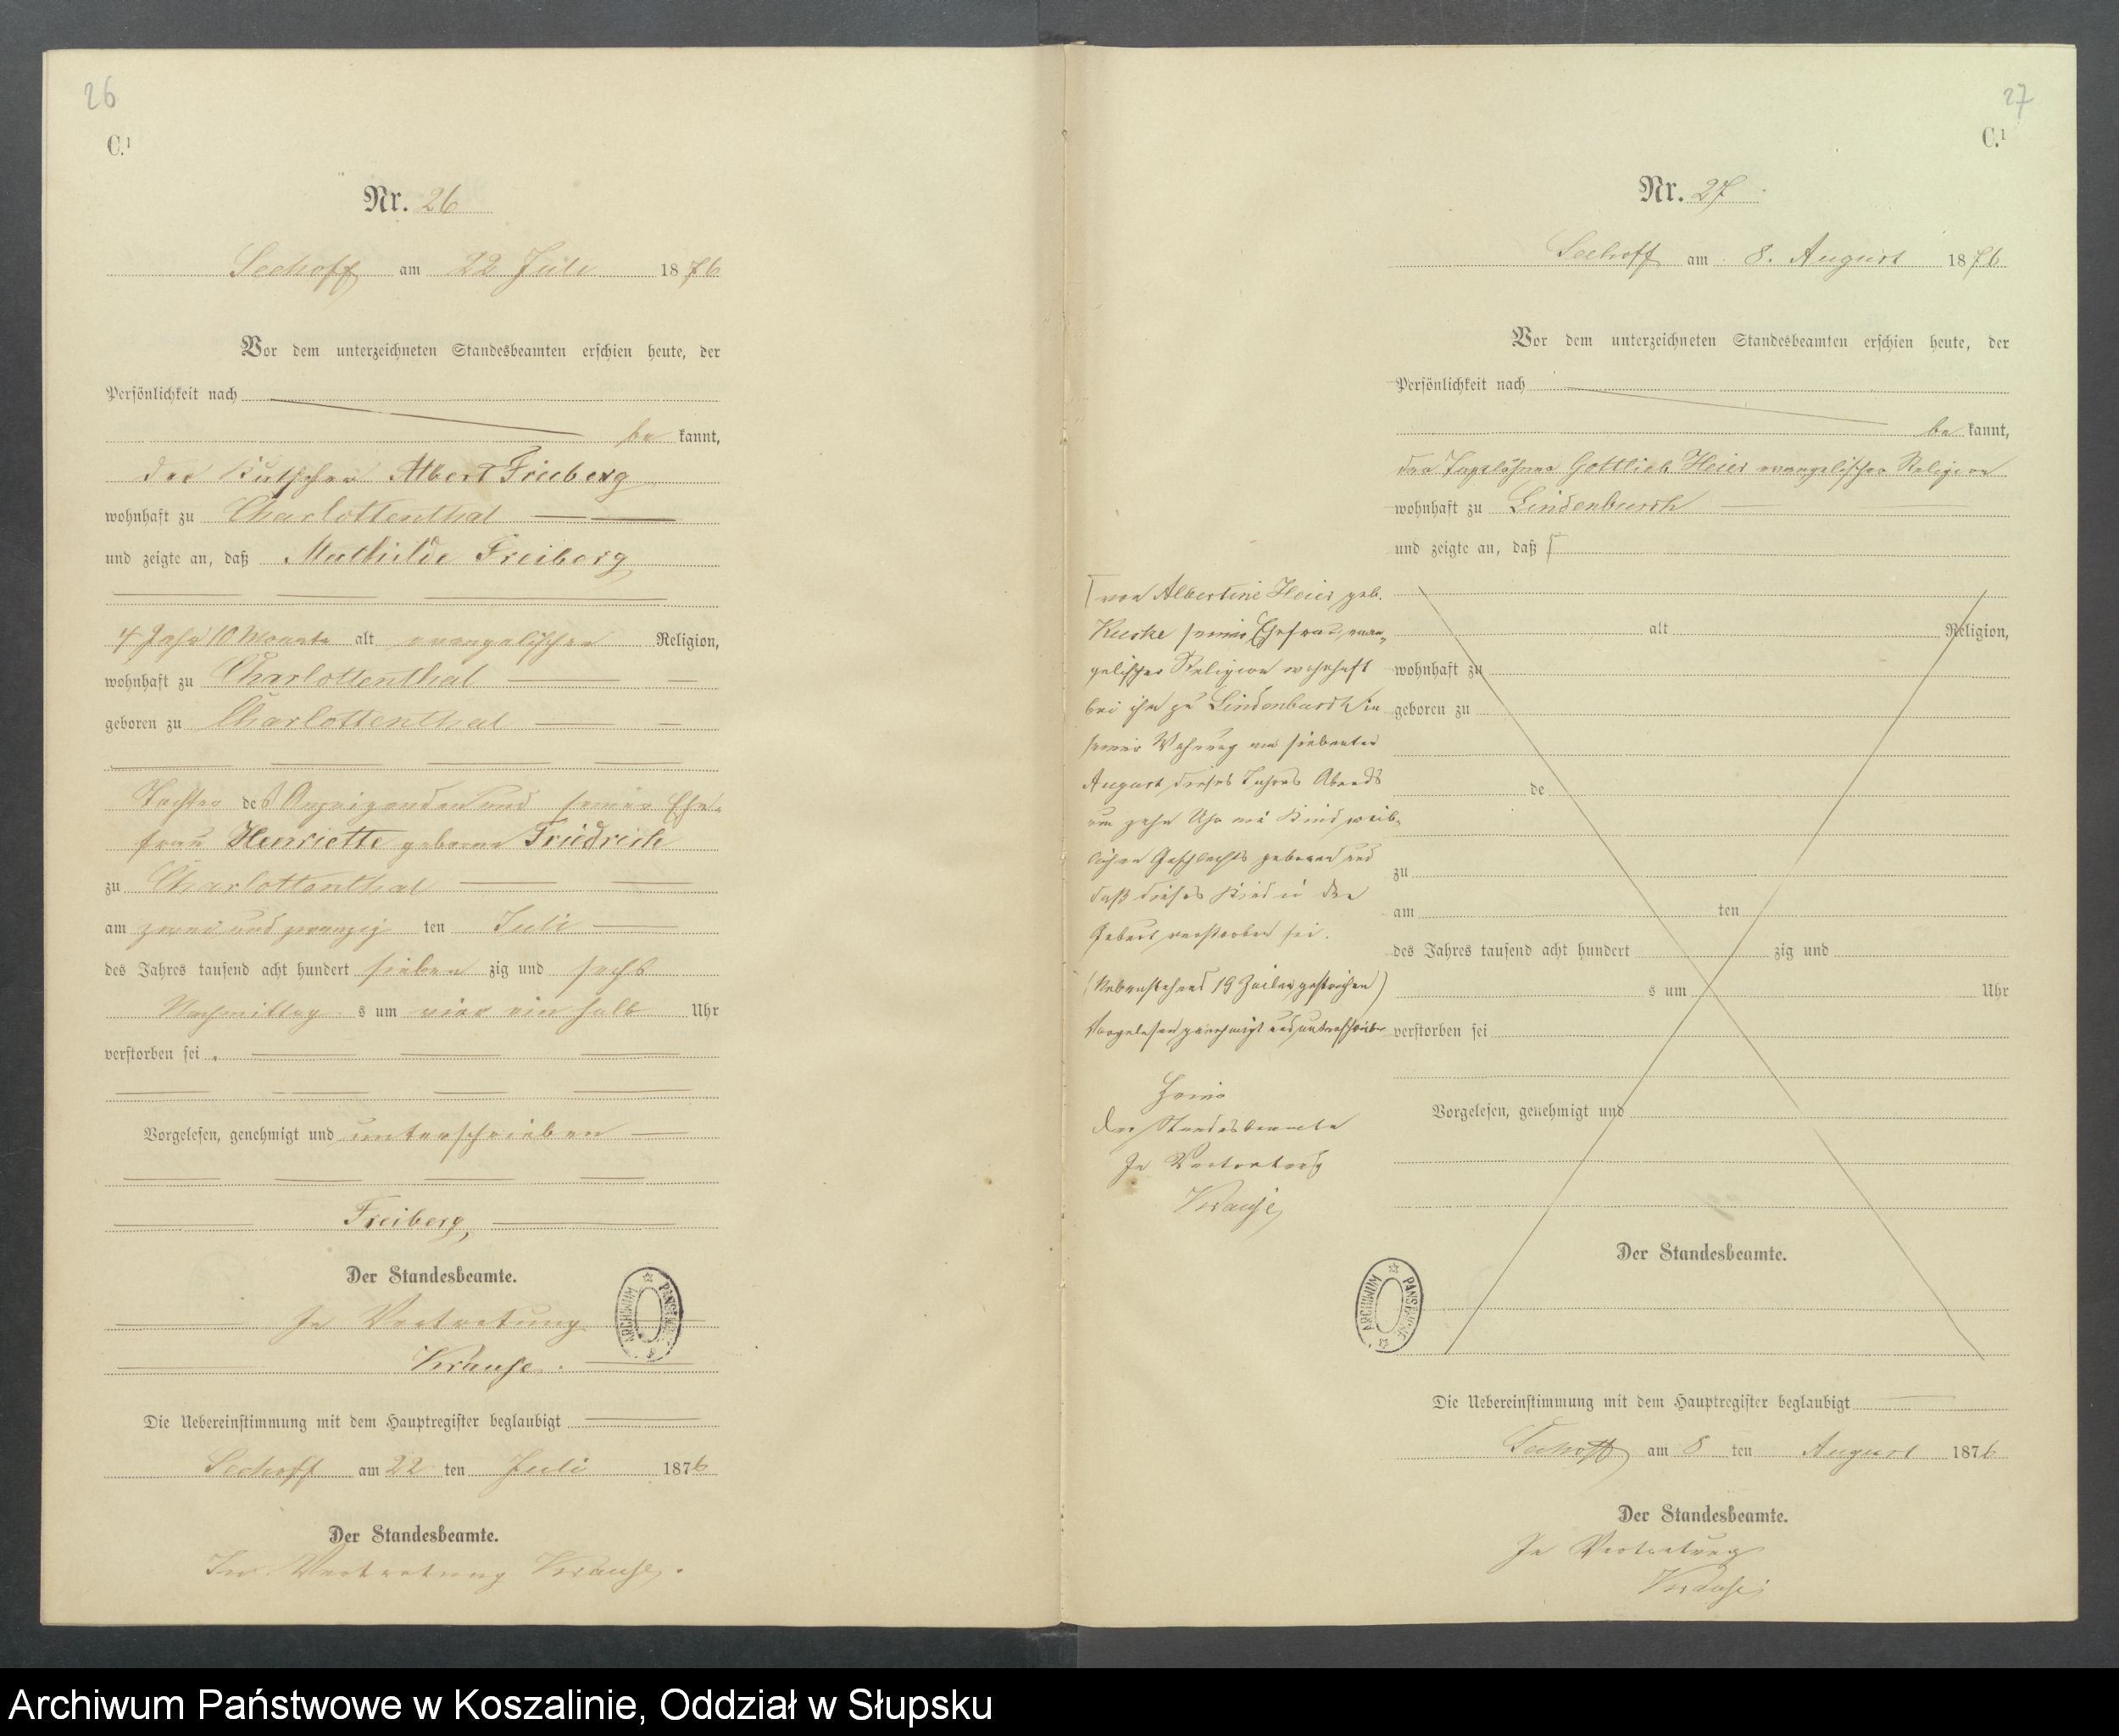 26
C.¹
Nr. 26
Seehoff am 22 Juli 1876
Vor dem unterzeichneten Standesbeamten erschien heute, der
Persönlichkeit nach
be kannt,
der Kutscher Albert Freiberg
wohnhaft zu Charlottenthal
und zeigte an, daß Mathilde Freiberg
4 Jahr 10 Monate alt evangelischer Religion,
wohnhaft zu Charlottenthal
geboren zu Charlottenthal
Tochter des Anzeigenden und seiner Ehe-
frau Henriette geborene Friedrich
zu Charlottenthal
am zwei und zwanzig ten Juli
des Jahres tausend acht hundert sieben zig und sechs
Nachmittag s um vier ein halb Uhr
verstorben sei.
Vorgelesen, genehmigt und unterschrieben
Freiberg
Der Standesbeamte.
In Vertretung
Krause.
ARCHIWUM PAŃSTWOWE
Die Uebereinstimmung mit dem Hauptregister beglaubigt
Seehoff am 22 ten Juli 1876
Der Standesbeamte.
In Vertretung Krause.
27
C.¹
Nr. 27
Seehoff am 8. August 1876
Vor dem unterzeichneten Standesbeamten erschien heute, der
Persönlichkeit nach
be kannt,
der Tagelöhner Gottlieb Heier evangelischer Religion
wohnhaft zu Lindenbusch
und zeigte an, daß
von Albertine Heier geb.
Kuske seiner Ehefrau, evan-
gelischer Religion wohnhaft
bei ihm zu Lindenbusch in
seiner Wohnung am siebenten
August dieses Jahres Abends
um zehn Uhr ein Kind weib-
lichen Geschlechts geboren und
daß dieses Kind in der
Geburt verstorben sei.
(Nebenstehend 19 Zeilen gestrichen)
Vorgelesen genehmigt und unterschrieben
der Standesbeamte
In Vertretung
Krause
alt Religion,
wohnhaft zu
geboren zu
de
zu
am ten
des Jahres tausend acht hundert zig und
s um Uhr
verstorben sei
Vorgelesen, genehmigt und
Der Standesbeamte.
ARCHIWUM PAŃSTWOWE
Die Uebereinstimmung mit dem Hauptregister beglaubigt
Seehoff am 8 ten August 1876
Der Standesbeamte.
In Vertretung
Krause
Archiwum Państwowe w Koszalinie, Oddział w Słupsku